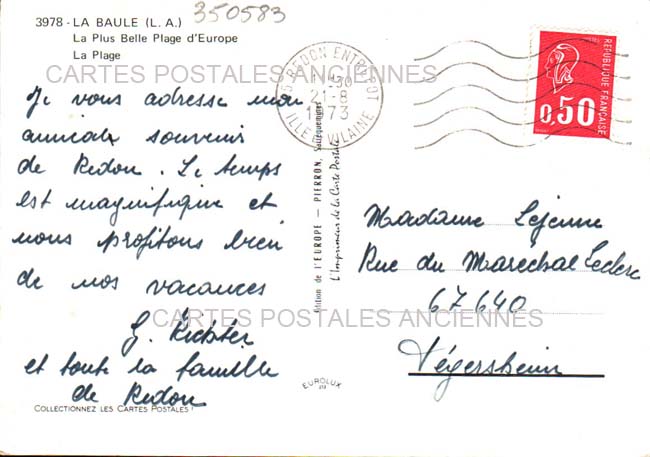 3978 - LA BAULE (L. A.)
La Plus Belle Plage d'Europe
La Plage
350583
CARTES POSTALES ANCIENNES
REDON ENTREPOT
21-8
1973
ILLE ET VILAINE
REPUBLIQUE FRANÇAISE
0,50
Je vous adresse mon
amical souvenir
de Redon. Le temps
est magnifique et
nous profitons bien
de nos vacances
G. Richter
et toute la famille
de Redon
Édition de l'EUROPE — PIERRON, Sarreguemines
L'Imprimeur de la Carte Postale
Madame Lejeune
Rue du Marechal Leclerc
67640
Fégersheim
CARTES POSTALES ANCIENNES
EUROLUX
COLLECTIONNEZ LES CARTES POSTALES !